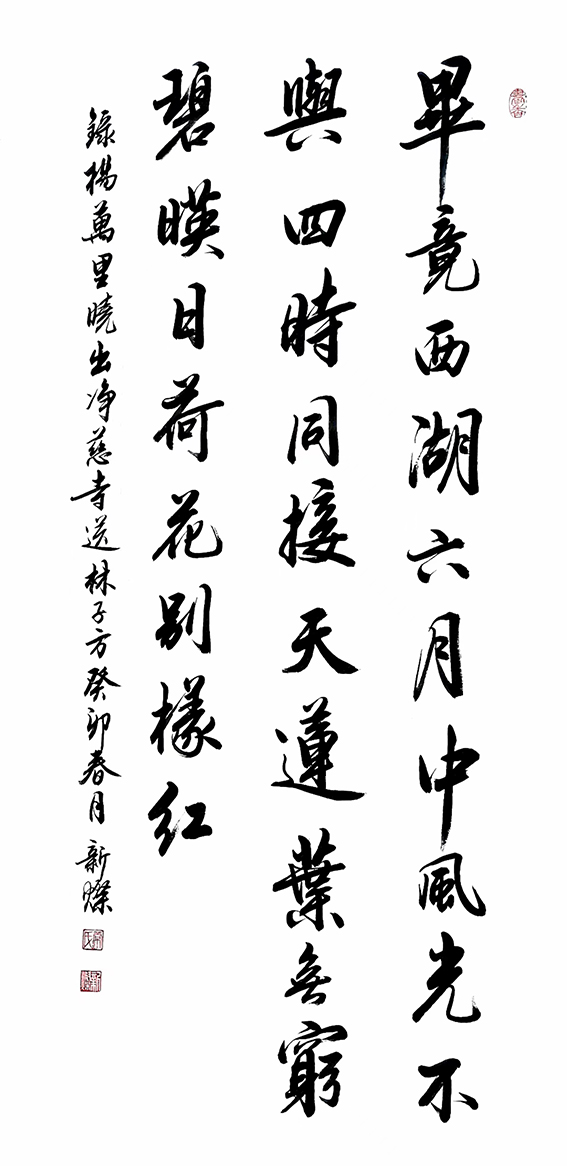 畢竟西湖六月中風光不
與四時同接天蓮葉无窮
碧暎日荷花别樣红
錄楊萬里曉出净慈寺送林子方癸卯春月 新燦